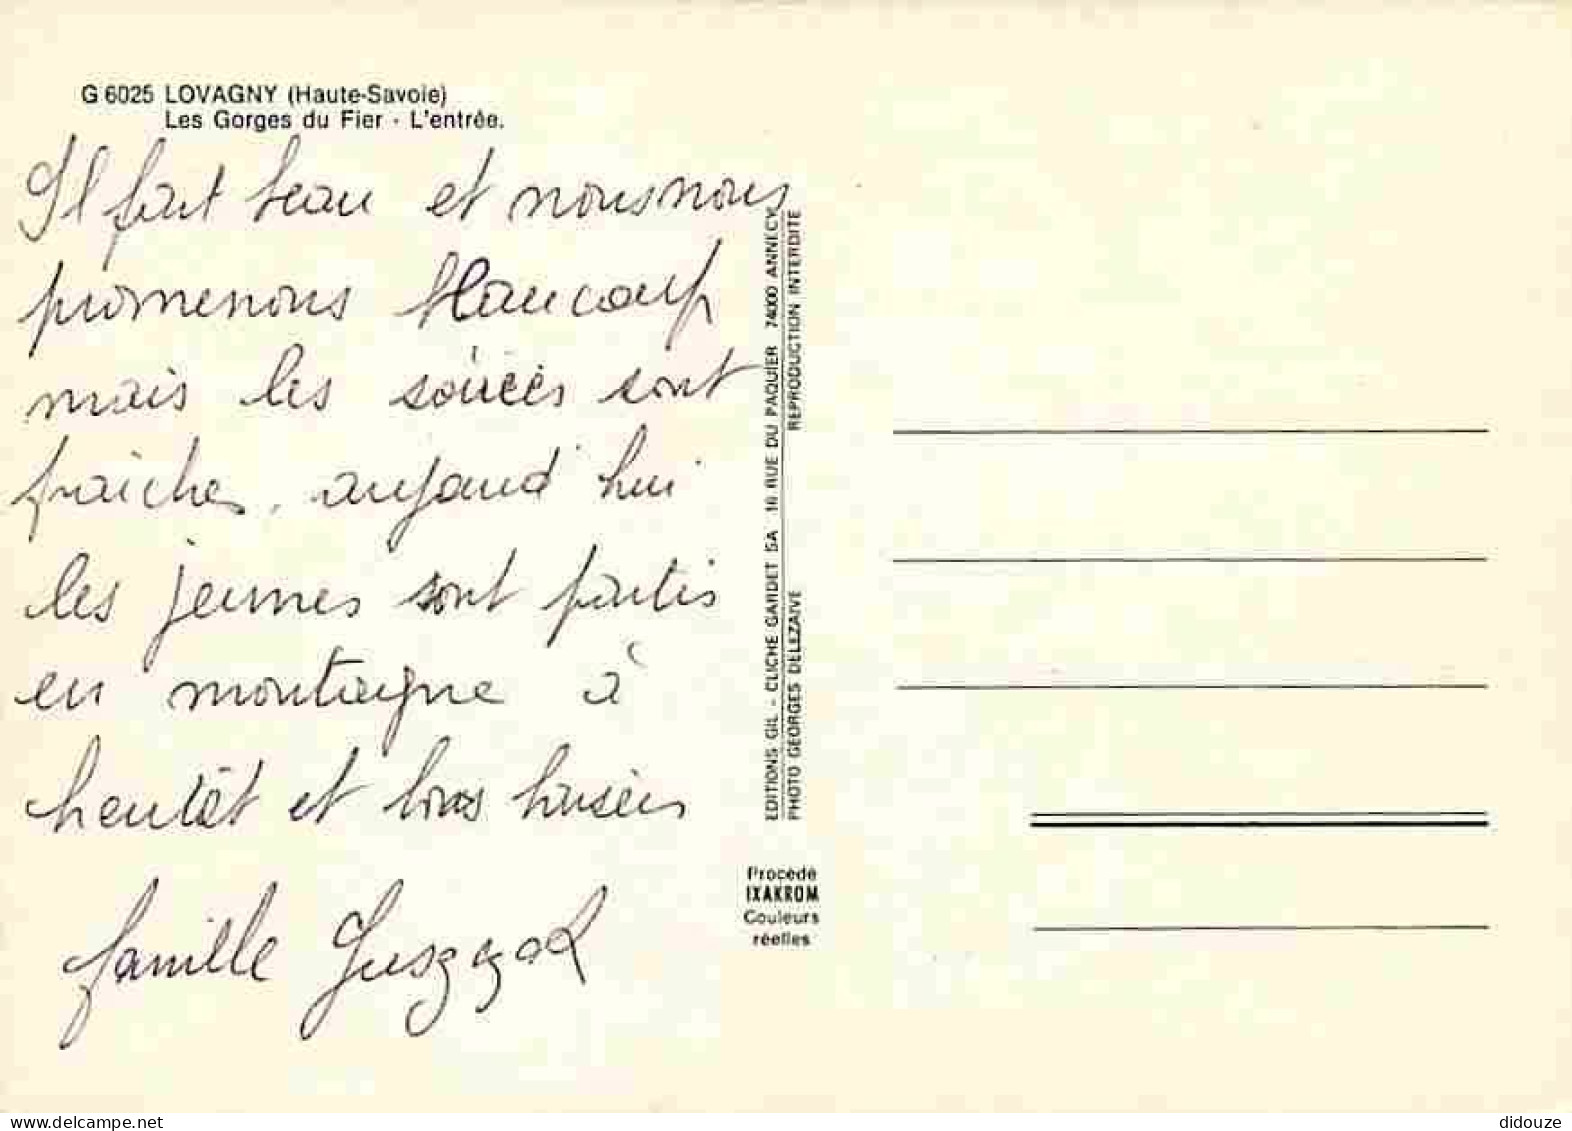 G 6025 LOVAGNY (Haute-Savoie)
Les Gorges du Fier - L'entrée.
Il fait beau et nous nous
promenons beaucoup
mais les soirées sont
fraiches. aujourd'hui
les jeunes sont partis
en montagne à
bientôt et bons baisers
famille
EDITIONS GIL - CLICHE GARDET SA 16 RUE DU PAQUIER 74000 ANNECY
PHOTO GEORGES DELEZAIVE REPRODUCTION INTERDITE
Procédé
IXAKROM
Couleurs
réelles
didouze